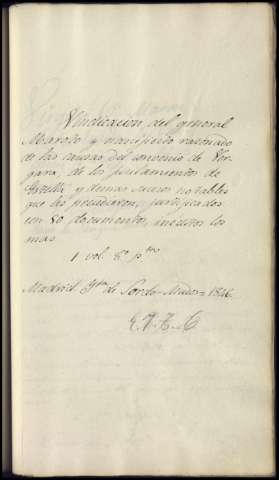 Vindicacion del general
Maroto y manifiesto razonado
de las causas del convenio de Ver-
gara, de los fusilamientos de
Estella y demas sucesos notables
que les precedieron, justificados
con 50 documentos, ineditos los
mas.
1 vol. 8º
Madrid Ytª de Sordo-Mudos 1846.